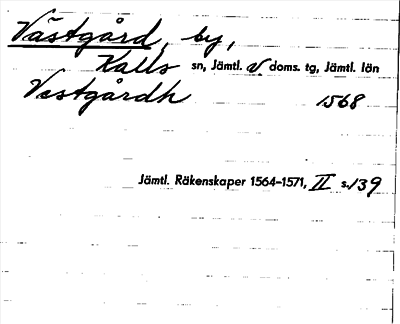 Västgård, by,
Kalls sn, Jämtl. v doms. tg, Jämtl. län
Vestgårdh 1568
Jämtl. Räkenskaper 1564–1571, II s. 139